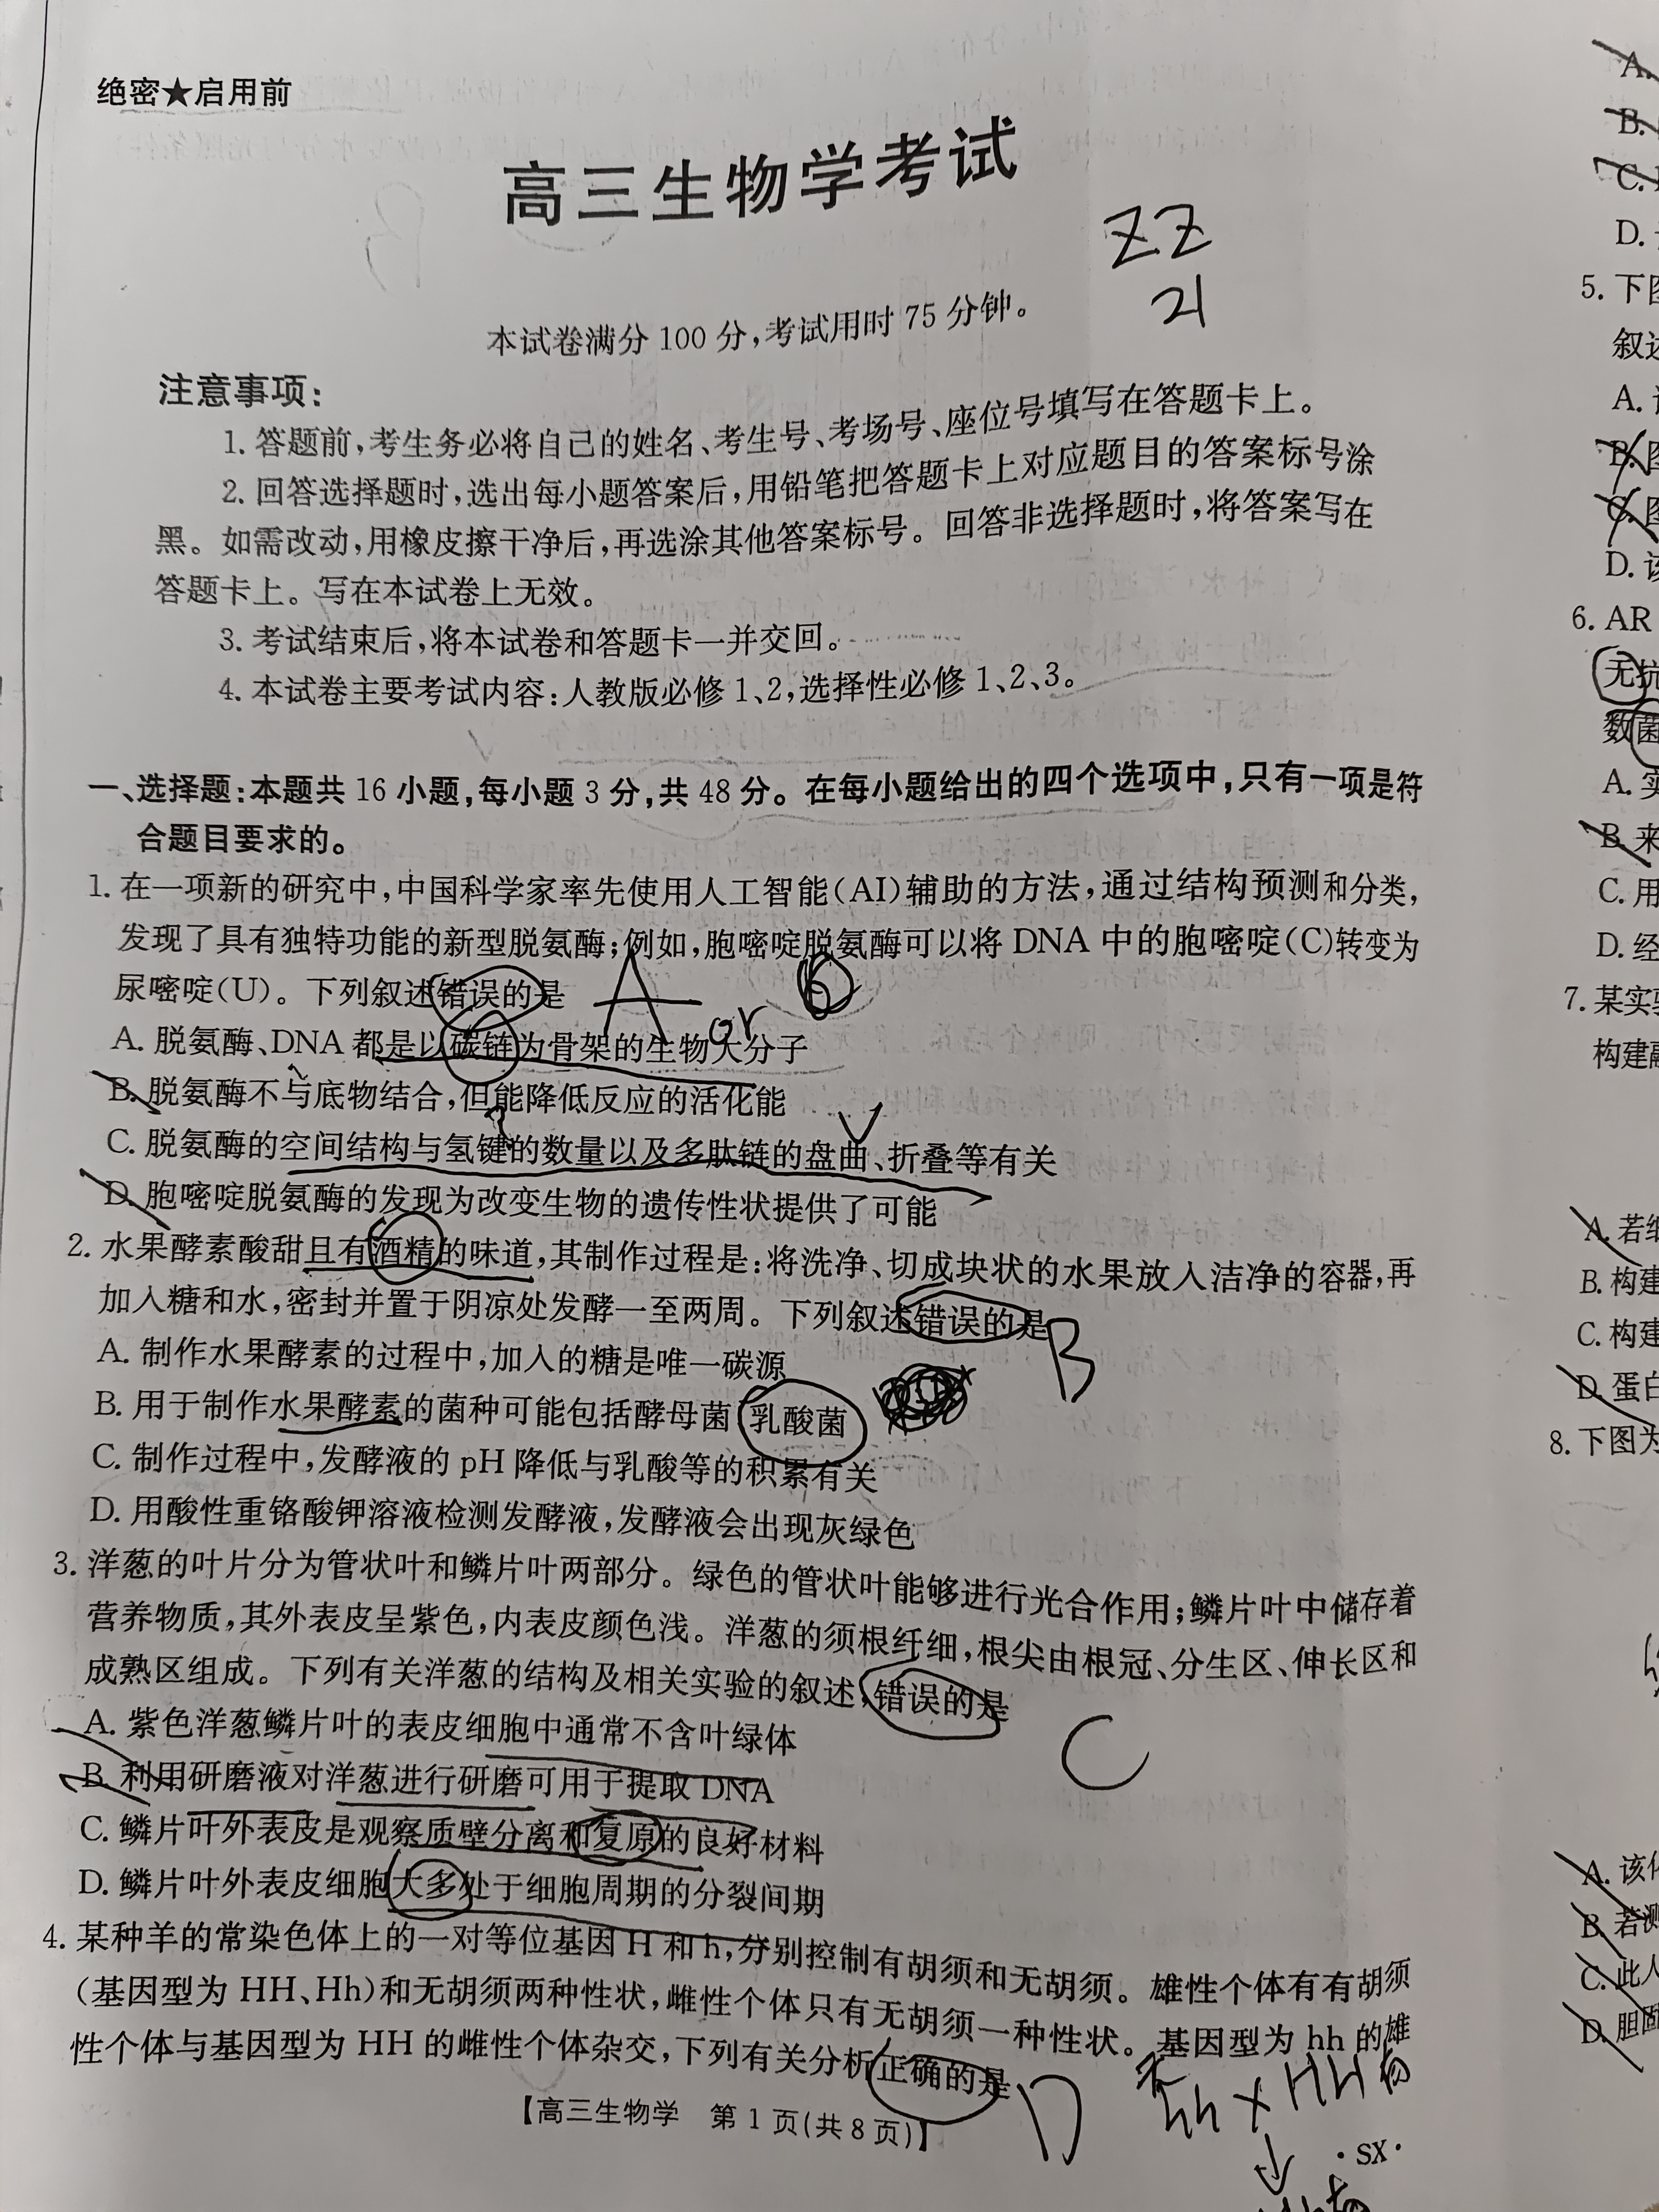 绝密★启用前
高三生物学考试
ZZ
21
本试卷满分100分,考试用时75分钟。
注意事项:
1. 答题前,考生务必将自己的姓名、考生号、考场号、座位号填写在答题卡上。
2. 回答选择题时,选出每小题答案后,用铅笔把答题卡上对应题目的答案标号涂
黑。如需改动,用橡皮擦干净后,再选涂其他答案标号。回答非选择题时,将答案写在
答题卡上。写在本试卷上无效。
3. 考试结束后,将本试卷和答题卡一并交回。
4. 本试卷主要考试内容:人教版必修1、2,选择性必修1、2、3。
一、选择题:本题共16小题,每小题3分,共48分。在每小题给出的四个选项中,只有一项是符
合题目要求的。
1. 在一项新的研究中,中国科学家率先使用人工智能(AI)辅助的方法,通过结构预测和分类,
发现了具有独特功能的新型脱氨酶;例如,胞嘧啶脱氨酶可以将DNA中的胞嘧啶(C)转变为
尿嘧啶(U)。下列叙述错误的是
A or
A. 脱氨酶、DNA都是以碳链为骨架的生物大分子
B. 脱氨酶不与底物结合,但能降低反应的活化能
C. 脱氨酶的空间结构与氢键的数量以及多肽链的盘曲、折叠等有关
D. 胞嘧啶脱氨酶的发现为改变生物的遗传性状提供了可能
2. 水果酵素酸甜且有酒精的味道,其制作过程是:将洗净、切成块状的水果放入洁净的容器,再
加入糖和水,密封并置于阴凉处发酵一至两周。下列叙述错误的是
B
A. 制作水果酵素的过程中,加入的糖是唯一碳源
B. 用于制作水果酵素的菌种可能包括酵母菌、乳酸菌
C. 制作过程中,发酵液的pH降低与乳酸等的积累有关
D. 用酸性重铬酸钾溶液检测发酵液,发酵液会出现灰绿色
3. 洋葱的叶片分为管状叶和鳞片叶两部分。绿色的管状叶能够进行光合作用;鳞片叶中储存着
营养物质,其外表皮呈紫色,内表皮颜色浅。洋葱的须根纤细,根尖由根冠、分生区、伸长区和
成熟区组成。下列有关洋葱的结构及相关实验的叙述,错误的是
C
A. 紫色洋葱鳞片叶的表皮细胞中通常不含叶绿体
B. 利用研磨液对洋葱进行研磨可用于提取DNA
C. 鳞片叶外表皮是观察质壁分离和复原的良好材料
D. 鳞片叶外表皮细胞大多处于细胞周期的分裂间期
4. 某种羊的常染色体上的一对等位基因H和h,分别控制有胡须和无胡须。雄性个体有有胡须
(基因型为HH、Hh)和无胡须两种性状,雌性个体只有无胡须一种性状。基因型为hh的雄
性个体与基因型为HH的雌性个体杂交,下列有关分析正确的是
D
无
hh × HH
↓
【高三生物学 第1页(共8页)】
·SX·
A.
B.
C.
D.
5. 下图
叙述
A.
B. 图
C. 图
D. 该
6. AR
无抗
数菌
A. 实
B. 来
C. 用
D. 经
7. 某实验
构建融
A. 若细
B. 构建
C. 构建
D. 蛋白
8. 下图为
A. 该
B. 若测
C. 此人
D. 胆固